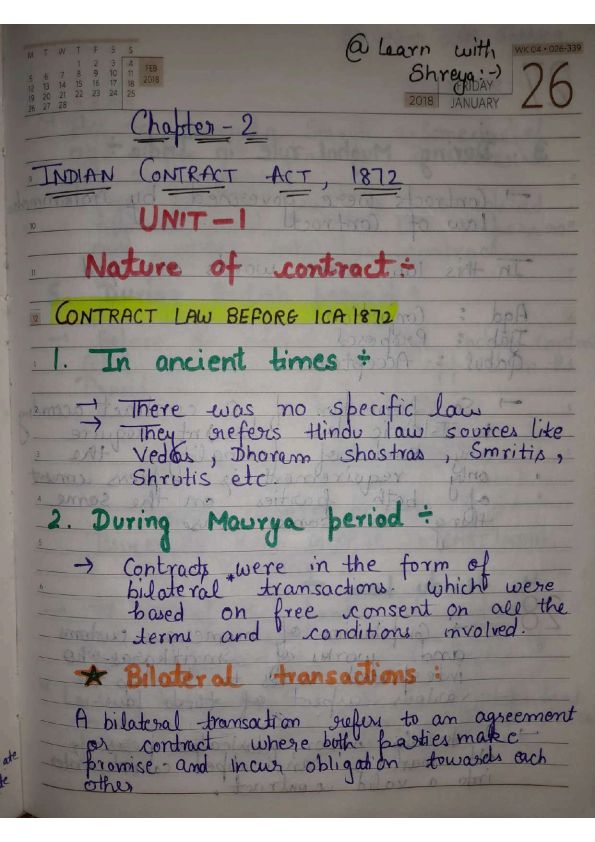 @ Learn with
Shreya :-)
M T W T F S S
1 2 3 4
5 6 7 8 9 10 11
12 13 14 15 16 17 18
19 20 21 22 23 24 25
26 27 28
FEB
2018
WK 04 • 026-339
FRIDAY
26
2018 JANUARY
Chapter - 2
INDIAN CONTRACT ACT, 1872
UNIT - 1
Nature of contract ÷
CONTRACT LAW BEFORE ICA 1872
1. In ancient times ÷
→ There was no specific law
→ They refers Hindu law sources like
Vedas, Dharam shastras, Smritis,
Shrutis etc.
2. During Maurya period ÷
→ Contracts were in the form of
bilateral* transactions. which were
based on free consent on all the
terms and conditions involved.
★ Bilateral transactions :
A bilateral transaction refers to an agreement
or contract where both parties make
promise and incur obligation towards each
other